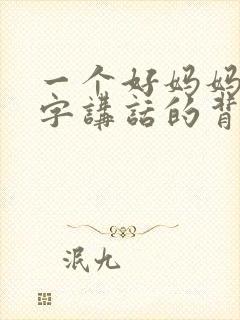 一个好妈妈
字講話的背
泯九